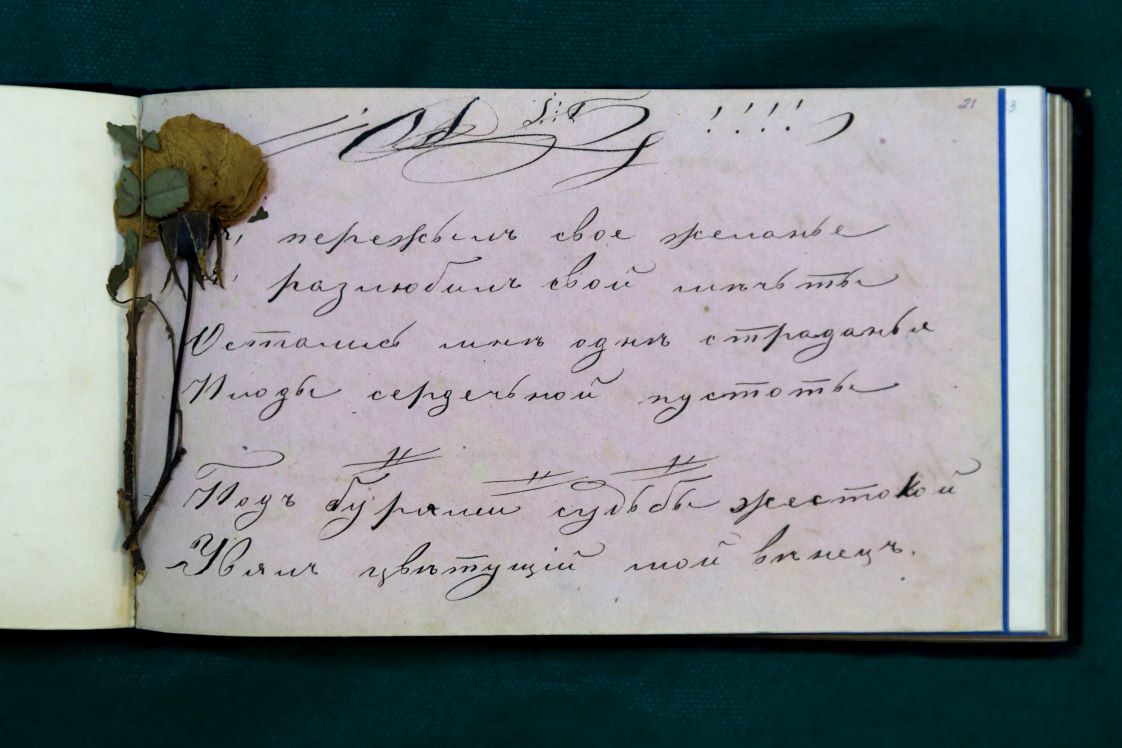 21
3
!!!!
пережылъ свое желанье
разлюбилъ свой мѣчьты
Остались мнѣ однѣ страданья
Плоды сердечьной пустоты
Подъ бурями судьбы жестокой
Увялъ цвѣтущій мой вѣнецъ.